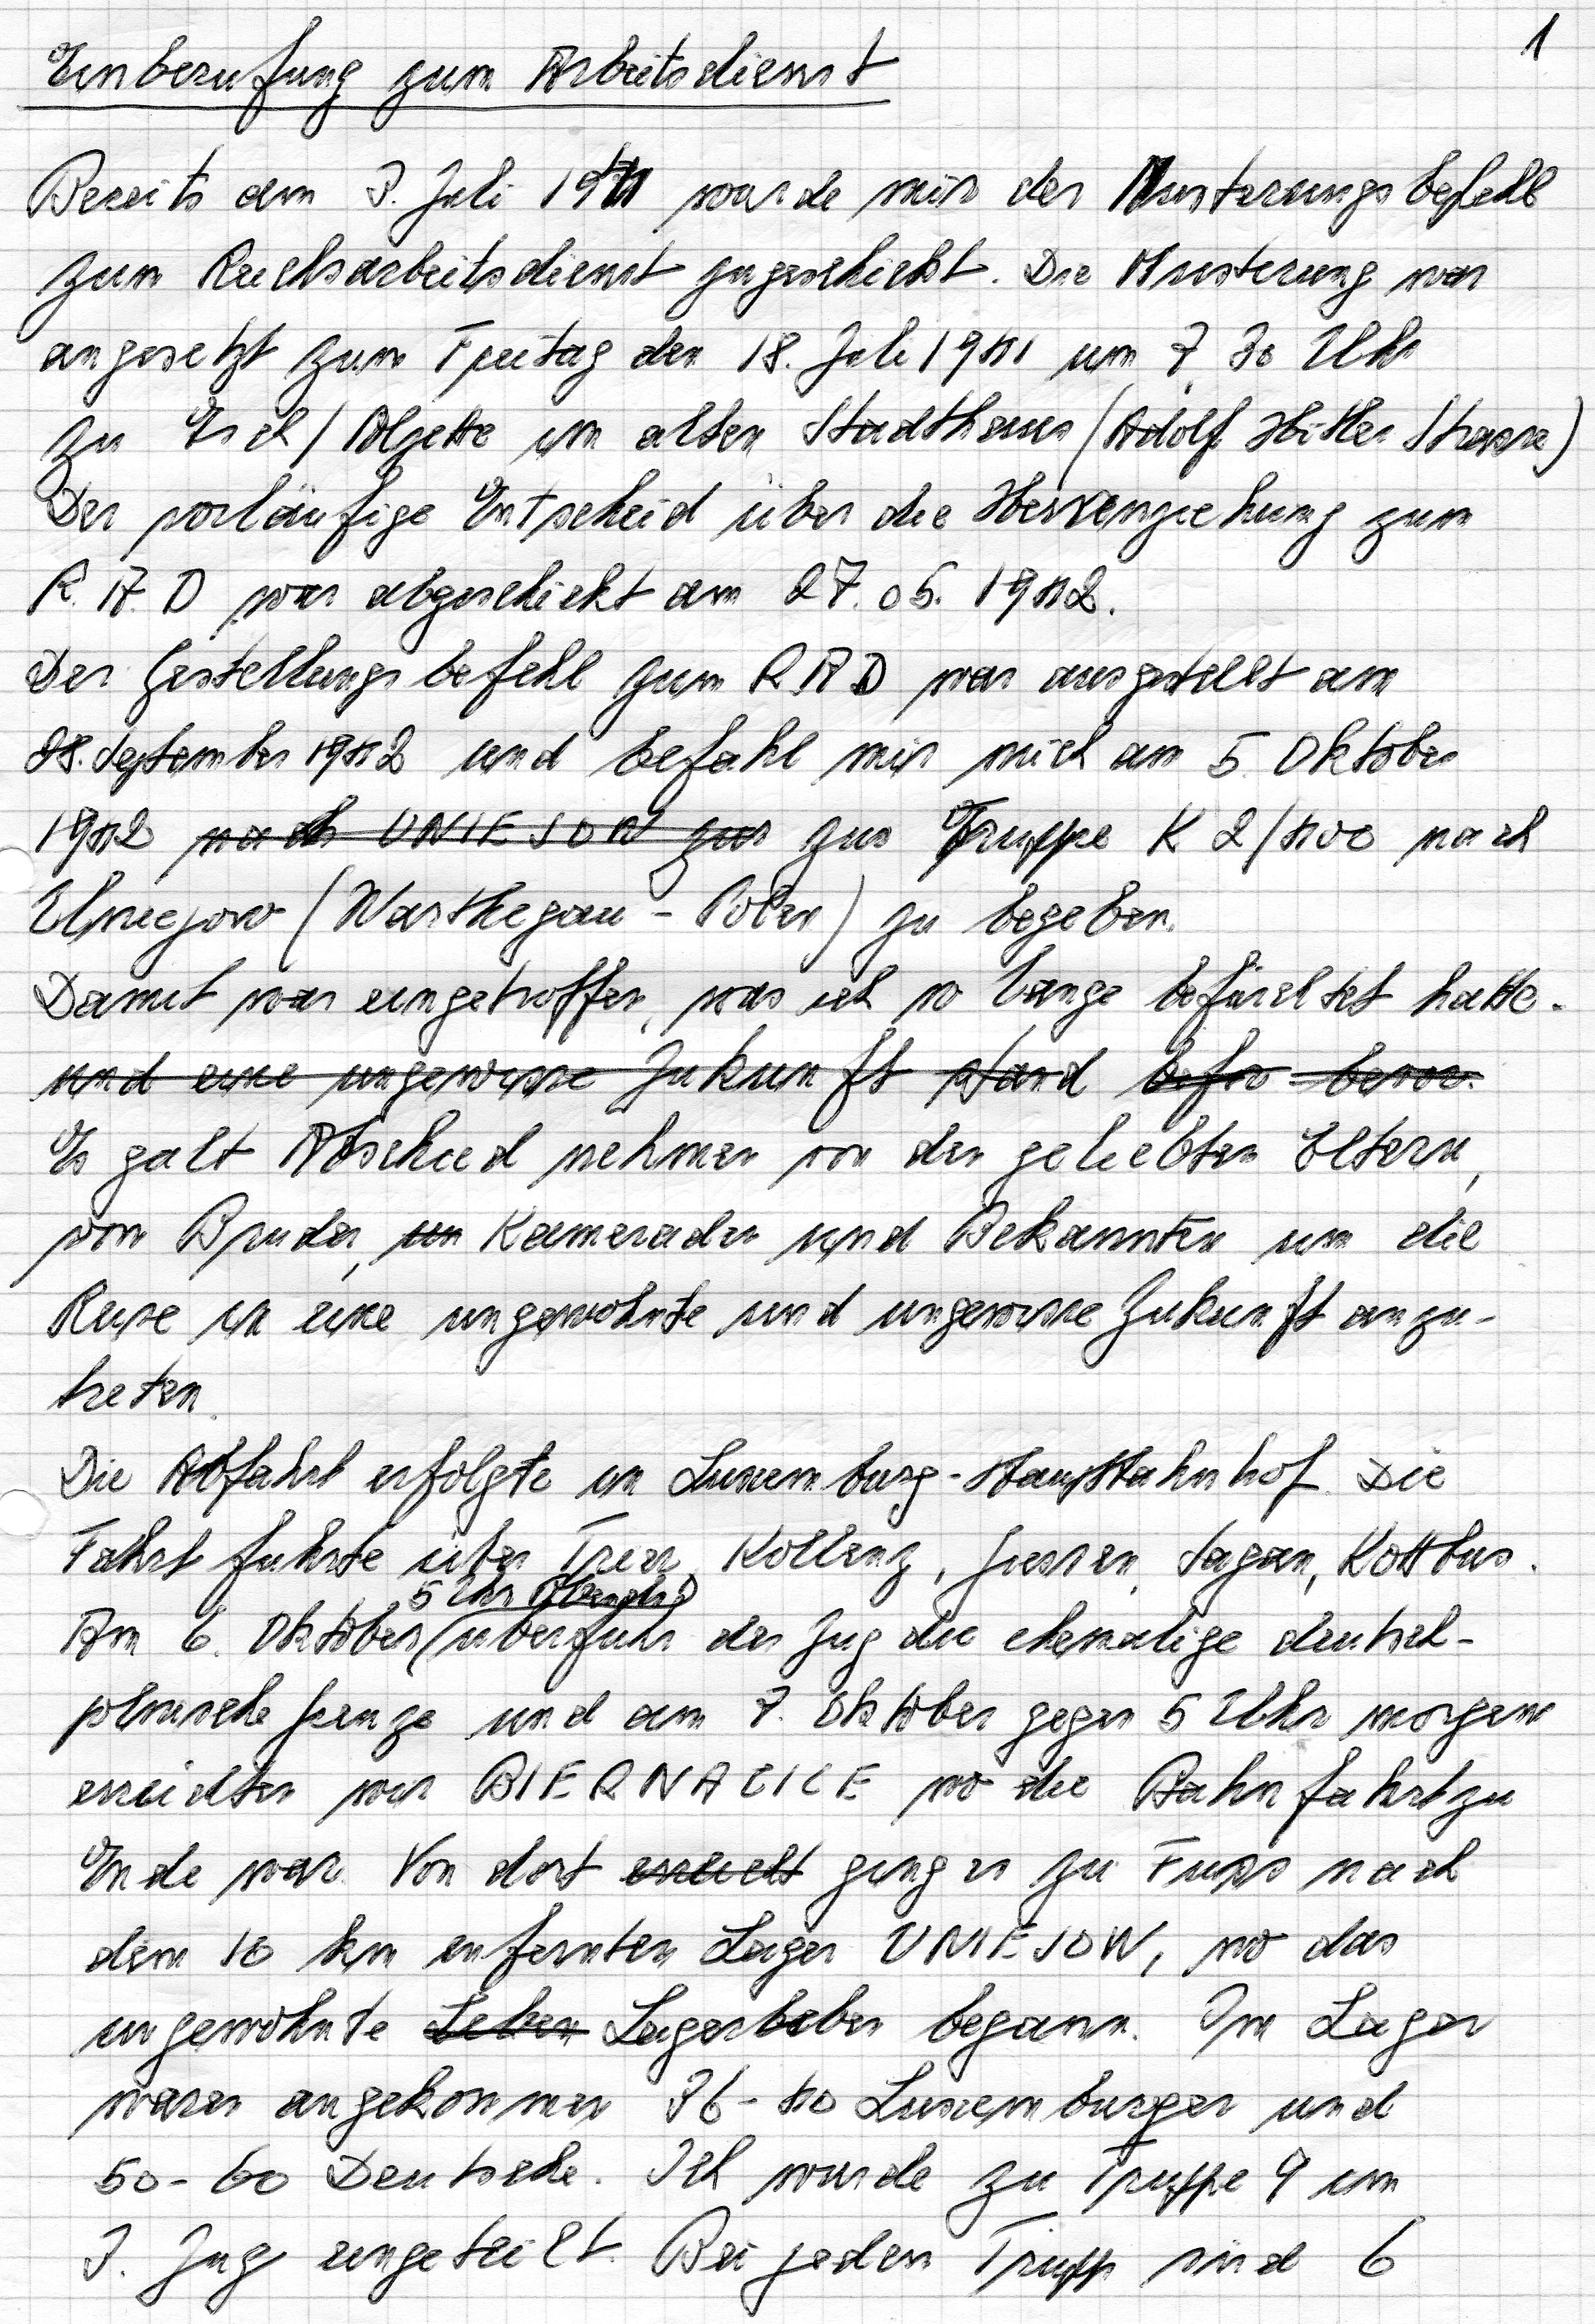 1
Einberufung zum Arbeitsdienst
Bereits am 3. Juli 1941 wurde mir der Musterungsbefehl
zum Reichsarbeitsdienst zugeschickt. Die Musterung war
angesetzt zum Freitag den 18. Juli 1941 um 7 30 Uhr
zu Esch/Alzette im alten Stadthaus (Adolf Hitler Strasse)
Der vorläufige Entscheid über die Heranziehung zum
R. A. D war abgeschickt am 27. 05. 1942.
Der Gestellungsbefehl zum RAD war ausgestellt am
28. September 1942 und befahl mir mich am 5. Oktober
1942 nach UNIEJOW zur zur Truppe K 2/400 nach
Uniejow (Warthegau - Polen) zu begeben.
Damit war eingetroffen, was ich so lange befürchtet hatte.
und eine ungewisse Zukunft stand befor bevor.
Es galt Abschied nehmen von den geliebten Eltern,
vom Bruder, un Kameraden und Bekannten um die
Reise in eine ungewohnte und ungewisse Zukunft anzu-
treten.
Die Abfahrt erfolgte in Luxemburg-Hauptbahnhof. Die
Fahrt fuhrte über Trier, Koblenz, Giessen, Sagan, Kottbus.
5 Uhr Abends
Am 6. Oktober überfuhr der Zug die ehemalige deutsch-
polnische Grenze und am 7. Oktober gegen 5 Uhr morgens
erreichten wir BIERNACICE wo die Bahnfahrt zu
Ende war. Von dort erreicht ging es zu Fuss nach
dem 10 km enfernten Lager UNIEJOW, wo das
ungewohnte Leben Lagerleben begann. Im Lager
waren angekommen 36-40 Luxemburger und
50-60 Deutsche. Ich wurde zu Truppe 9 im
3. Zug eingeteilt. Bei jedem Trupp sind 6